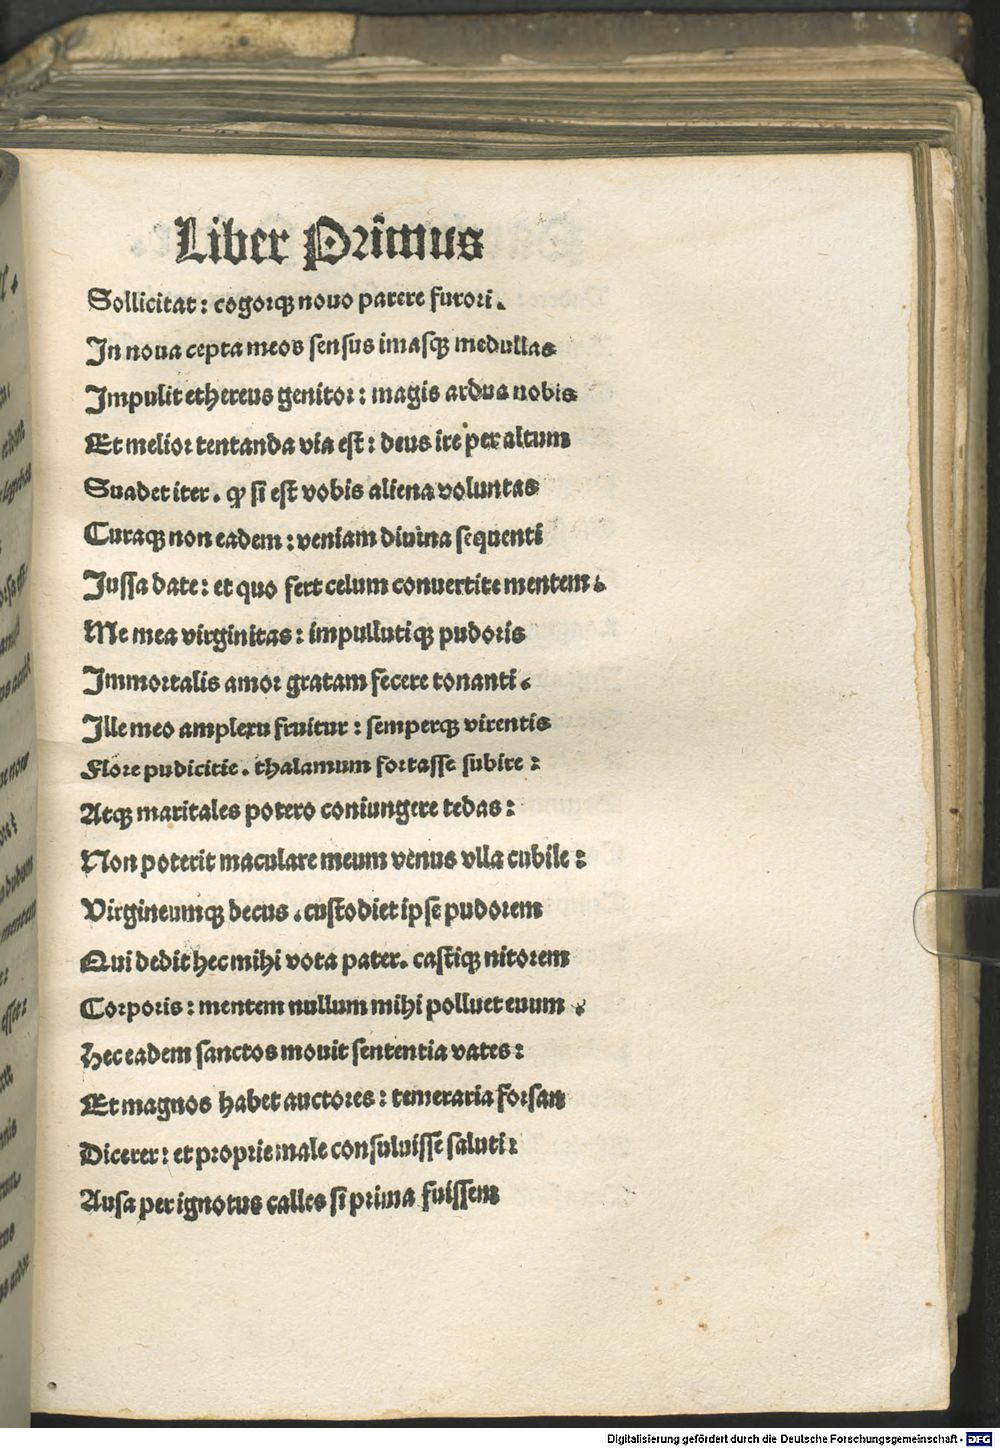 Liber Primus
Sollicitat: cogorqꝫ nouo parere furori.
In noua cepta meos sensus imasqꝫ medullas
Impulit ethereus genitor: magis ardua nobis
Et melior tentanda via est: deus ire per altum
Suadet iter. ꝙ si est vobis aliena voluntas
Curaqꝫ non eadem: veniam diuina sequenti
Jussa date: et quo fert celum conuertite mentem.
Me mea virginitas: impullutiqꝫ pudoris
Immortalis amor gratam fecere tonanti.
Ille meo amplexu fruitur: semperqꝫ virentis
Flore pudicitie. thalamum fortasse subire:
Atqꝫ maritales potero coniungere tedas:
Non poterit maculare meum venus vlla cubile:
Virgineumqꝫ decus. custodiet ipse pudorem
Qui dedit hec mihi vota pater. castiqꝫ nitorem
Corporis: mentem nullum mihi polluet euum.
Hec eadem sanctos mouit sententia vates:
Et magnos habet auctores: temeraria forsan
Dicerer: et proprie male consuluisse saluti:
Ausa per ignotus calles si prima fuissem
Digitalisierung gefördert durch die Deutsche Forschungsgemeinschaft - DFG